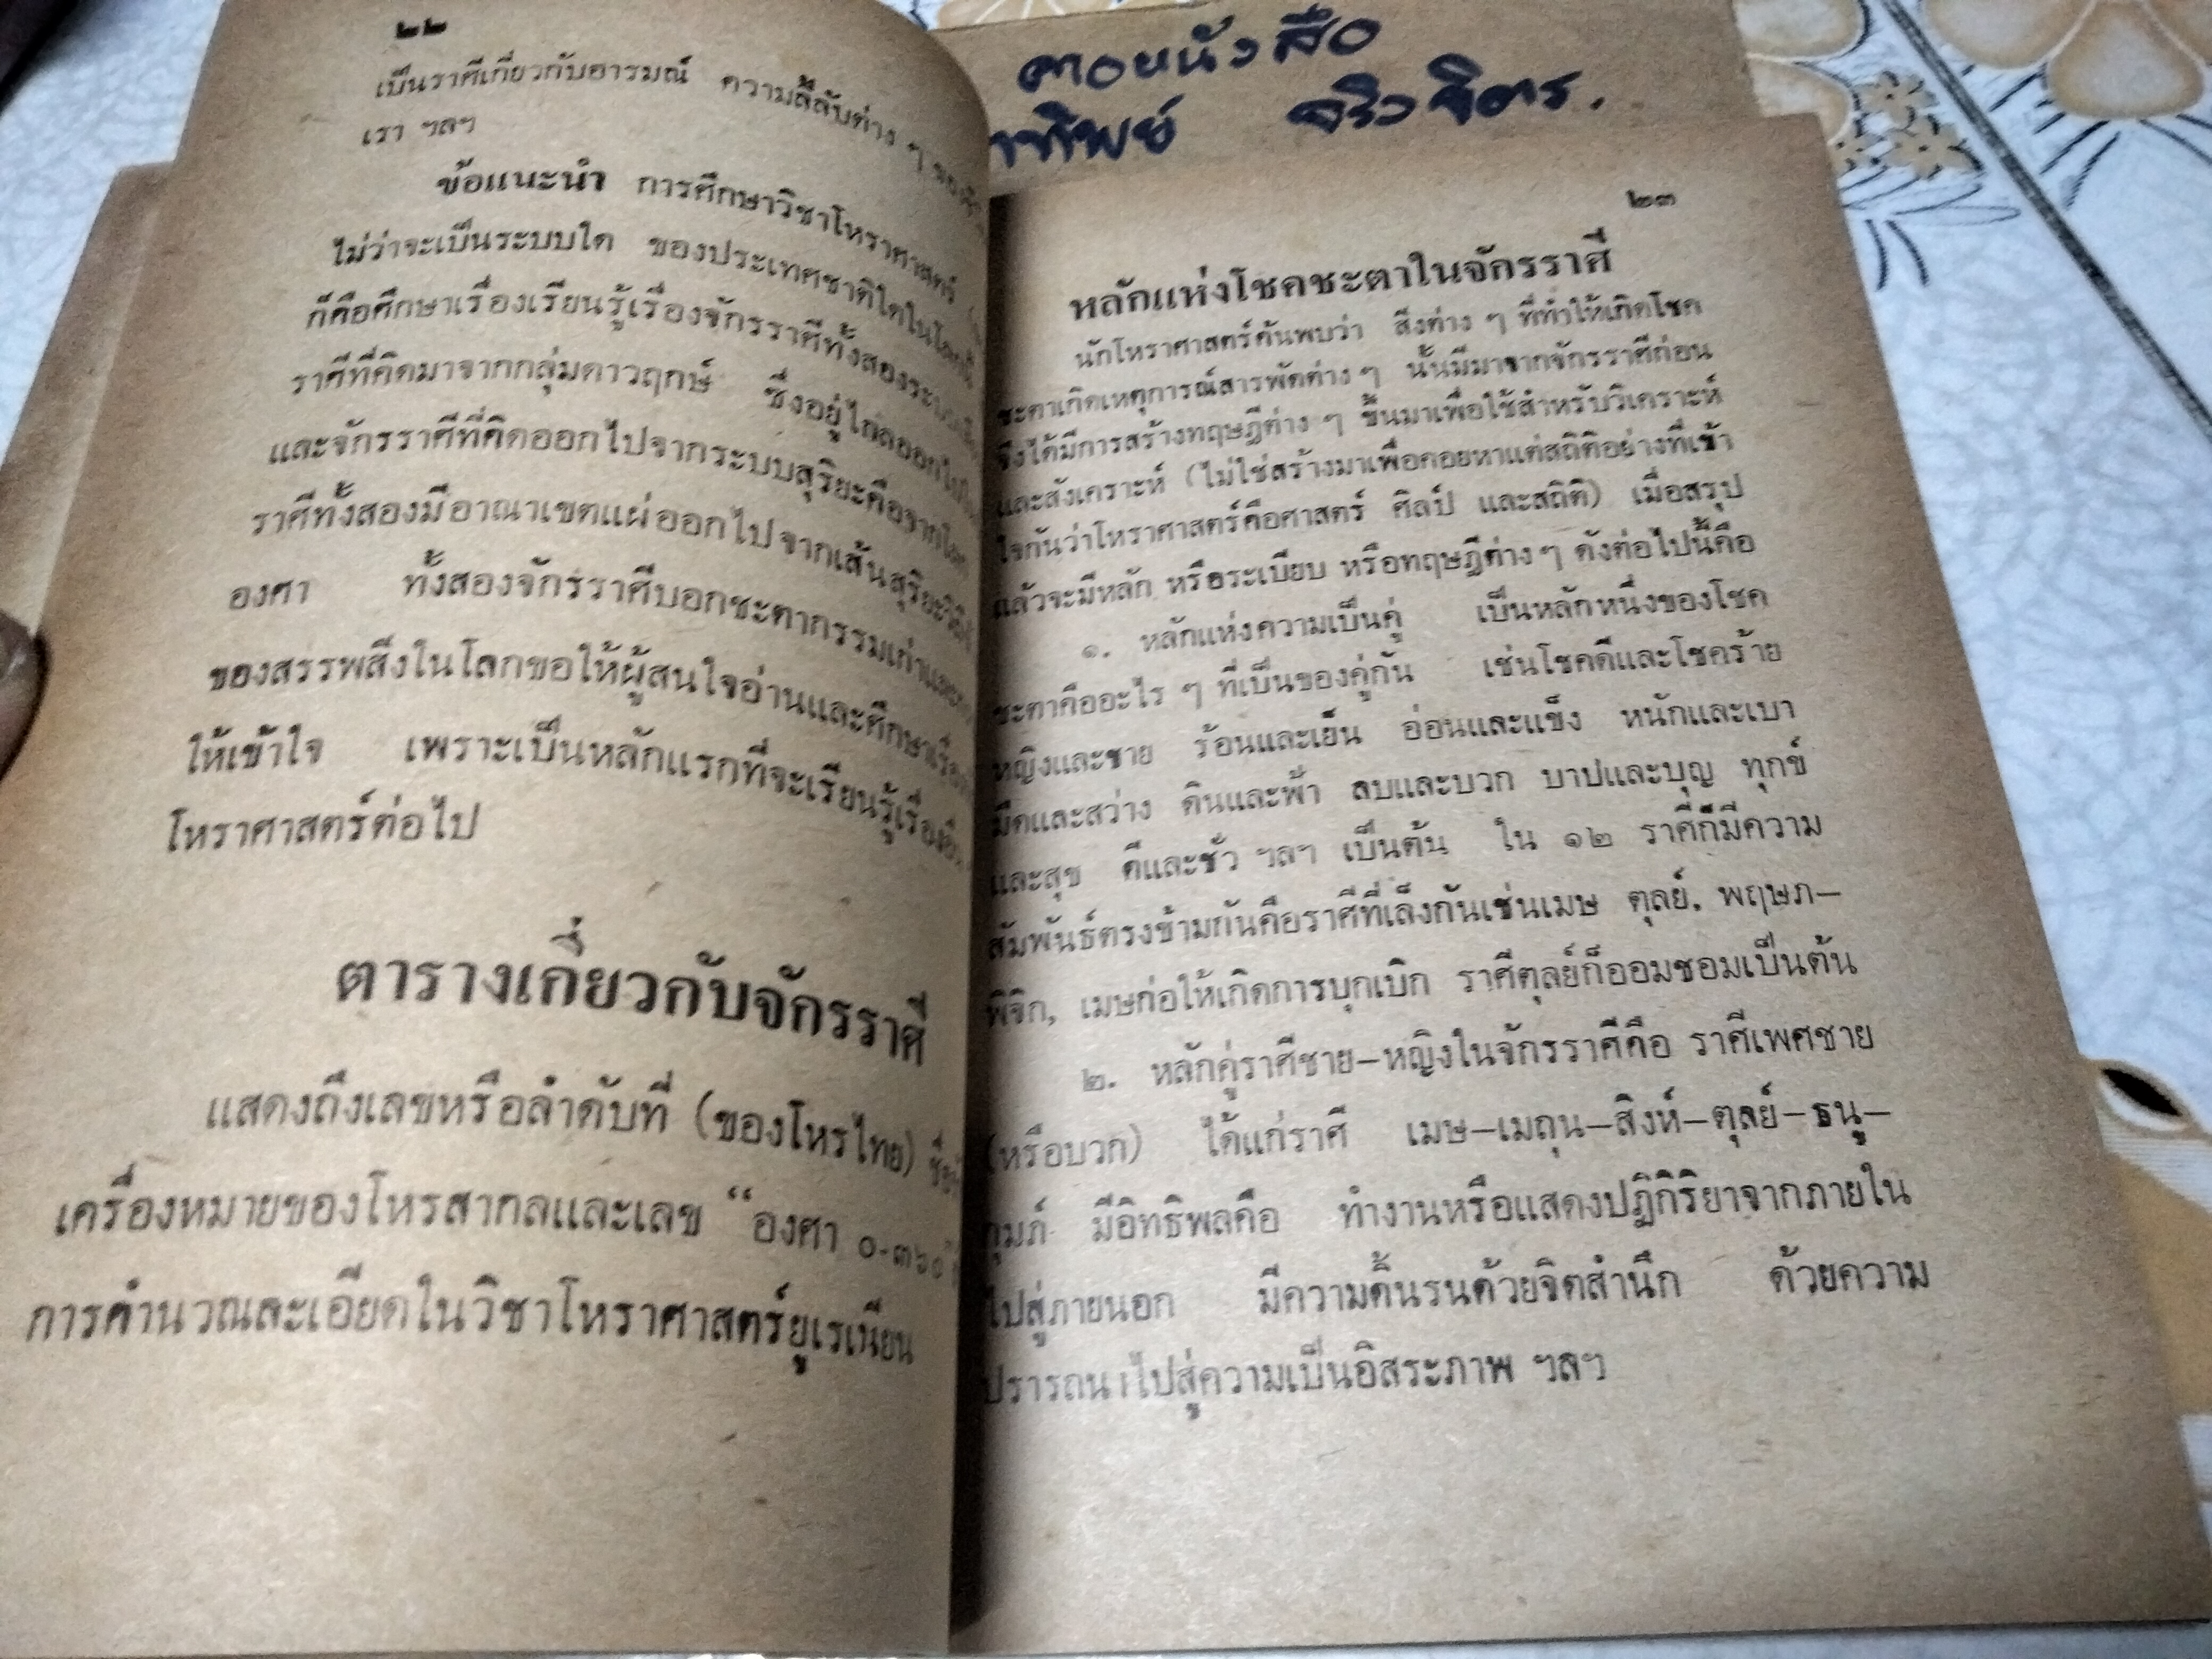 ๒๒
เป็นราศีเกี่ยวกับอารมณ์ ความลี้ลับต่าง ๆ
เรา ฯลฯ
ข้อแนะนำ การศึกษาวิชาโหราศาสตร์
ไม่ว่าจะเป็นระบบใด ของประเทศชาติใดในโลกนี้
ก็คือศึกษาเรื่องเรียนรู้เรื่องจักรราศีทั้งสองระบบ
ราศีที่คิดมาจากกลุ่มดาวฤกษ์ ซึ่งอยู่ไกลออกไป
และจักรราศีที่คิดออกไปจากระบบสุริยะคือจากโลก
ราศีทั้งสองมีอาณาเขตแผ่ออกไปจากเส้นสุริยะวิถี
องศา ทั้งสองจักรราศีบอกชะตากรรมเก่าและ
ของสรรพสิ่งในโลกขอให้ผู้สนใจอ่านและศึกษาเรื่อง
ให้เข้าใจ เพราะเป็นหลักแรกที่จะเรียนรู้เรื่อง
โหราศาสตร์ต่อไป
ตารางเกี่ยวกับจักรราศี
แสดงถึงเลขหรือลำดับที่ (ของโหรไทย)
เครื่องหมายของโหรสากลและเลข “องศา ๐-๓๖๐
การคำนวณละเอียดในวิชาโหราศาสตร์ยูเรเนียน
หนังสือ
ทิพย์
๒๓
หลักแห่งโชคชะตาในจักรราศี
นักโหราศาสตร์ค้นพบว่า สิ่งต่าง ๆ ที่ทำให้เกิดโชค
ชะตาเกิดเหตุการณ์สารพัดต่าง ๆ นั้นมีมาจากจักรราศีก่อน
จึงได้มีการสร้างทฤษฎีต่าง ๆ ขึ้นมาเพื่อใช้สำหรับวิเคราะห์
และสังเคราะห์ (ไม่ใช่สร้างมาเพื่อคอยหาแต่สถิติอย่างที่เข้า
ใจกันว่าโหราศาสตร์คือศาสตร์ ศิลป์ และสถิติ) เมื่อสรุป
แล้วจะมีหลัก หรือระเบียบ หรือทฤษฎีต่าง ๆ ดังต่อไปนี้คือ
๑. หลักแห่งความเป็นคู่ เป็นหลักหนึ่งของโชค
ชะตาคืออะไร ๆ ที่เป็นของคู่กัน เช่นโชคดีและโชคร้าย
หญิงและชาย ร้อนและเย็น อ่อนและแข็ง หนักและเบา
มืดและสว่าง ดินและฟ้า ลบและบวก บาปและบุญ ทุกข์
และสุข ดีและชั่ว ฯลฯ เป็นต้น ใน ๑๒ ราศีก็มีความ
สัมพันธ์ตรงข้ามกันคือราศีที่เล็งกันเช่นเมษ ตุลย์, พฤษภ–
พิจิก, เมษก่อให้เกิดการบุกเบิก ราศีตุลย์ก็ออมชอมเป็นต้น
๒. หลักคู่ราศีชาย–หญิงในจักรราศีคือ ราศีเพศชาย
(หรือบวก) ได้แก่ราศี เมษ–เมถุน–สิงห์–ตุลย์–ธนู–
กุมภ์ มีอิทธิพลคือ ทำงานหรือแสดงปฏิกิริยาจากภายใน
ไปสู่ภายนอก มีความดิ้นรนด้วยจิตสำนึก ด้วยความ
ปรารถนาไปสู่ความเป็นอิสระภาพ ฯลฯ